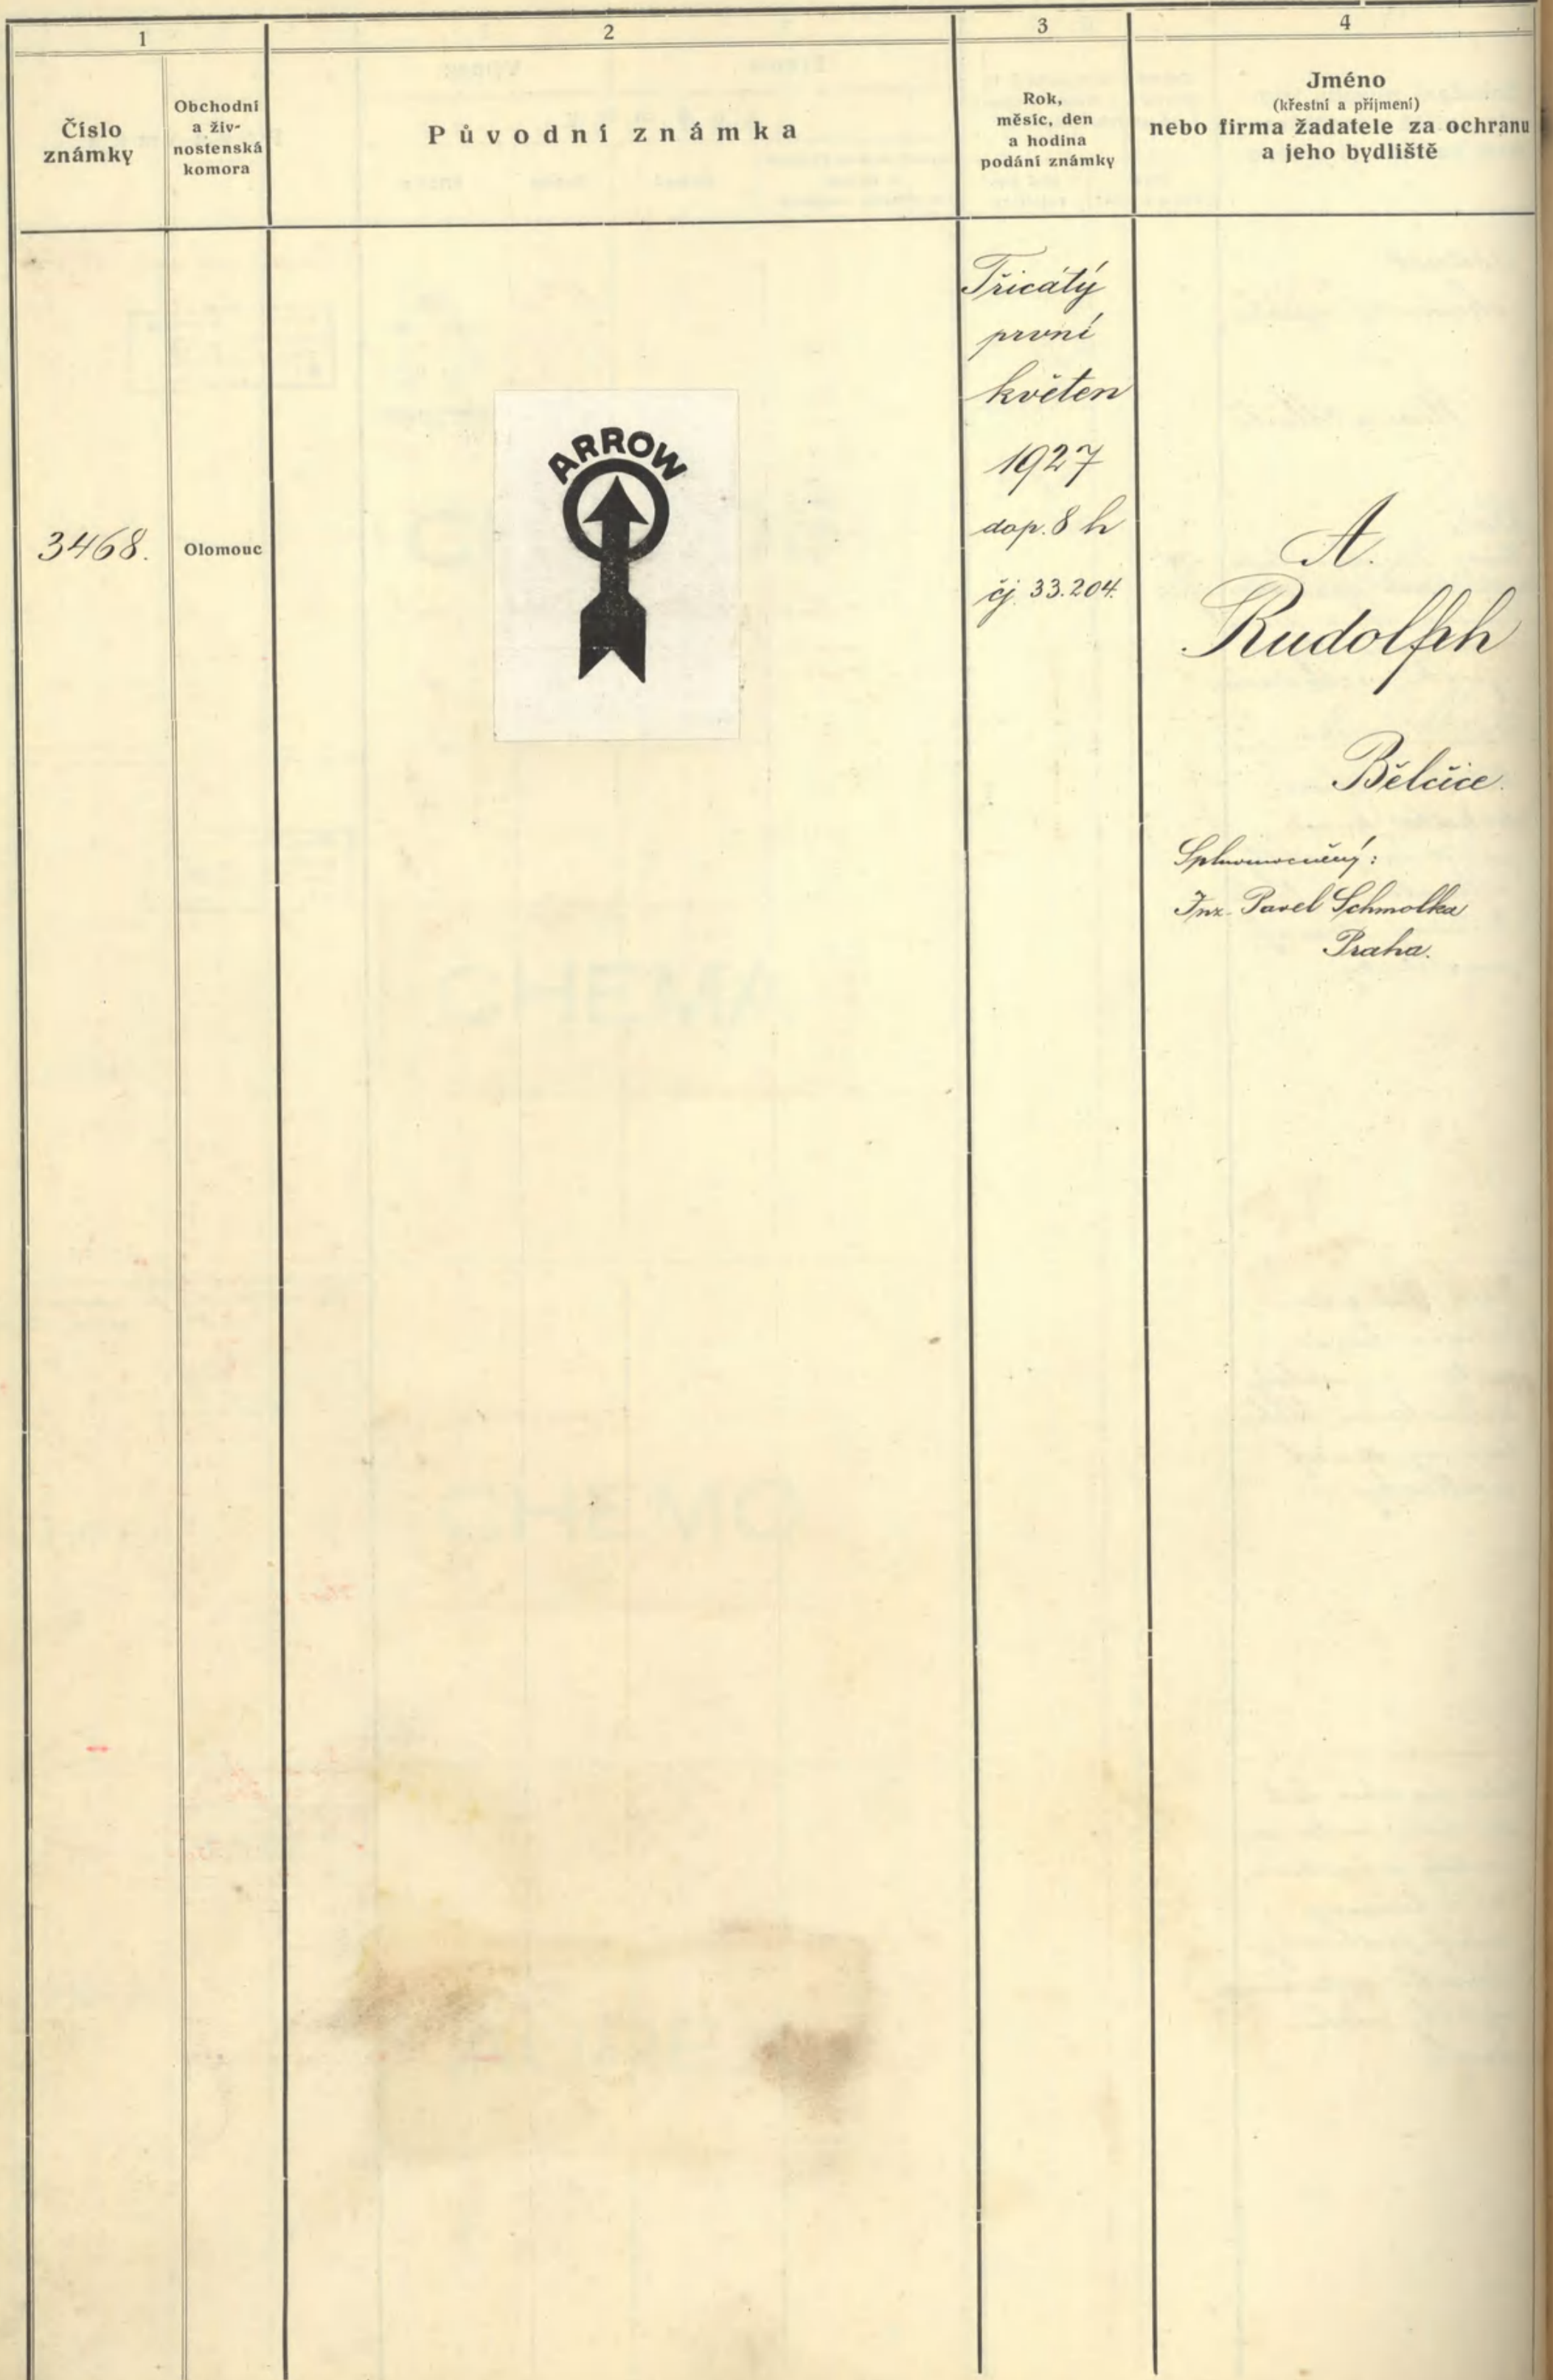 1
2
3
4
Číslo
známky
Obchodní
a živ-
nostenská
komora
Původní známka
Rok,
měsíc, den
a hodina
podání známky
Jméno
(křestní a příjmení)
nebo firma žadatele za ochranu
a jeho bydliště
3468.
Olomouc
ARROW
Třicátý
první
květen
1927
dop. 8 h
čj. 33.204.
A.
Rudolph
Bělčice.
Splnomocněný:
Inx. Pavel Schmolka
Praha.